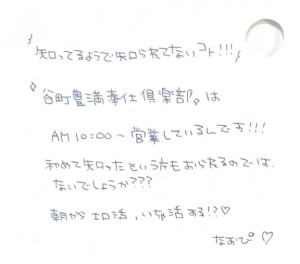 知ってるようで知られてないコト!!!
谷町豊満奉仕倶楽部。は
AM10:00〜営業しているんです!!!
初めて知ったという方もおられるのでは
ないでしょうか???
朝からエロ活、いちゃ活する!?♡
なおぴ♡